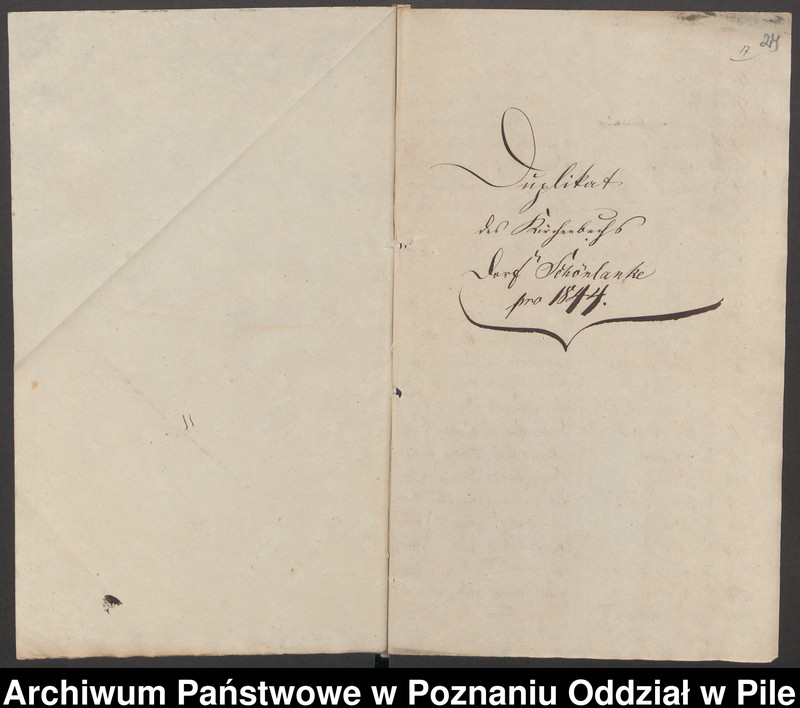 17 24
Duplikat
des Kirchenbuchs
Dorf Schönlanke
pro 1844.
Archiwum Państwowe w Poznaniu Oddział w Pile